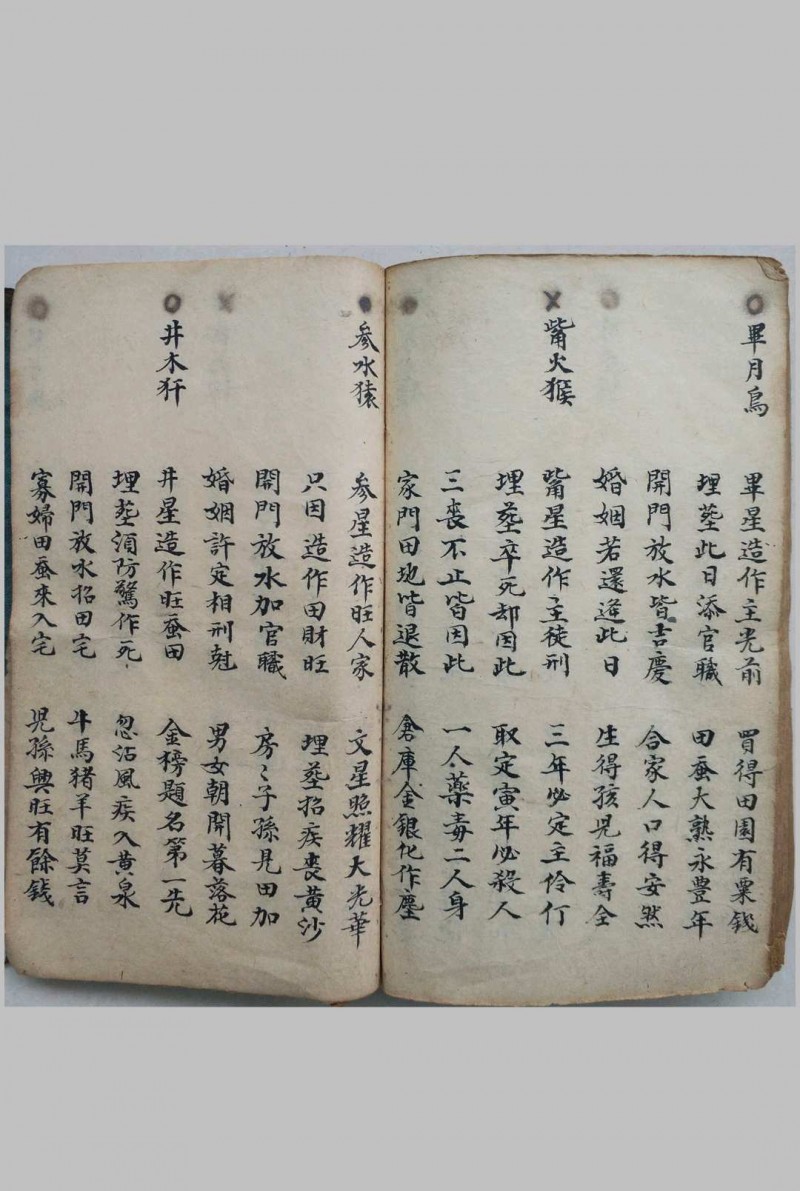 畢月烏
畢星造作主光前 買得田園有粟錢
埋塟此日添官職 田蚕大熟永豊年
開門放水皆吉慶 合家人口得安然
婚姻若還逢此日 生得孩児福壽全
觜火猴
觜星造作主徒刑 三年必定主伶仃
埋塟卒死却因此 取定寅年必殺人
三喪不止皆因此 一人藥毒二人身
家門田地皆退散 倉庫金銀化作塵
參水猿
參星造作旺人家 文星照耀大光華
只因造作田財旺 埋塟招疾喪黄沙
開門放水加官職 房〻子孫見田加
婚姻許定相刑尅 男女朝開暮落花
井木犴
井星造作旺蚕田 金榜題名第一先
埋塟須防驚作死 忽沾風疾入黄泉
開門放水招田宅 牛馬猪羊旺莫言
寡婦田蚕來入宅 児孫興旺有餘錢